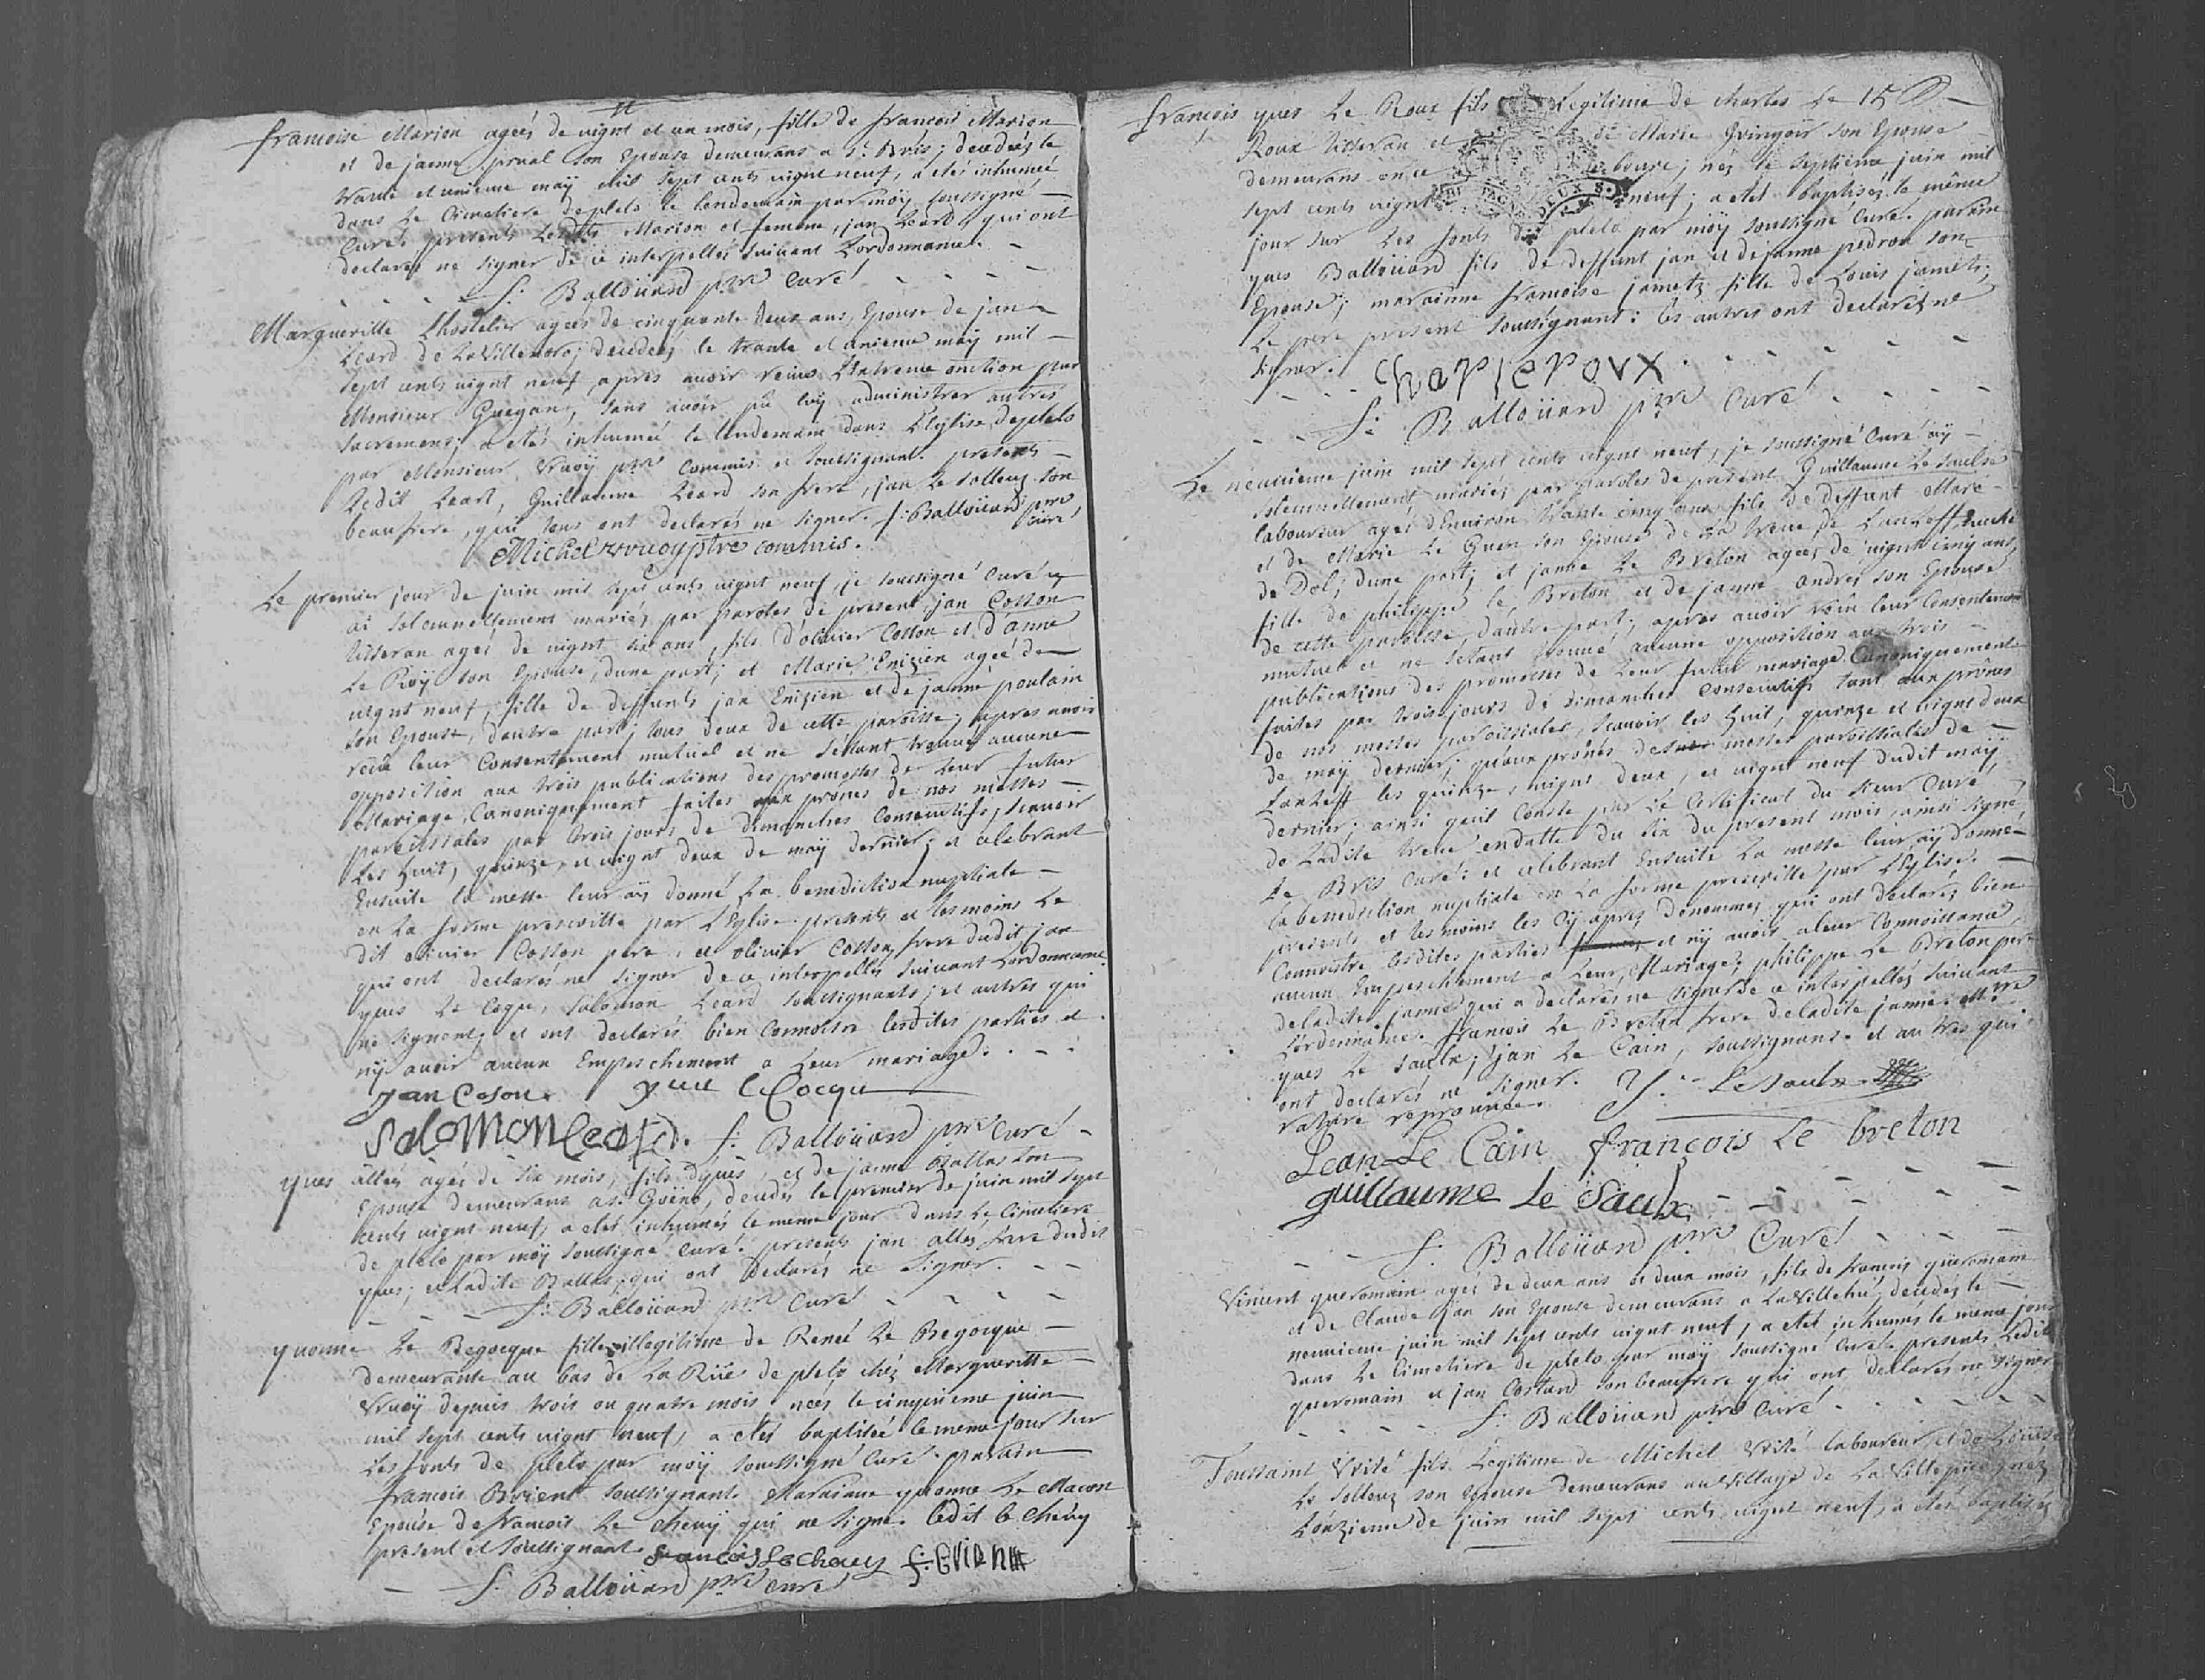 francoise Marion ageés de vignt et un mois, fille de francois Marion
et de jaenne prual son Epouse demeurans a St. Bris; decedeés le
trante et unieme maÿ mil sept cents vignt neuf, a etés inhumeé
dans le Cimetiere de plelo le lendemain par moÿ soussigné
Curé. presents lesdits Marion et femme, jan Leard qui ont
declarés ne signer de ce interpellés suivant Lordonnance.
f: Balloüard ptre Curé
Margueritte Lhostelier ageés de cinquante deux ans, Epouse de jan
Leard de La Villeneuve; decedeés le trante et unieme maÿ mil
sept cents vignt neuf, apres avoir recus L'Extreme onction par
Monsieur Guegan, sans avoir pû luÿ administrer autres
sacremens; a etés inhumeé le lendemain dans L'Eglise de plelo
par Monsieur Vruoÿ ptre Commis et soussignant. presents
Ledit Leart, Guillaume Leard son frere, jan Le solleuz son
beaufrere, qui tous ont declarés ne signer. f: Balloüard ptre
curé
Michel vruoy ptre commis.
Le premier jour de juin mil sept cents vignt neuf, je soussigné Curé
ai solemnellement mariés par paroles de present, jan Cosson
tisseran ageé de vignt six ans, fils d'olivier Cosson et d'anne
Le Roÿ son Epouse, dune part; et Marie Enizien ageé de
vignt neuf, fille de deffunts jan Enizien et de janne poulain
son Epouse, dautre part; tous deux de cette paroisse; apres avoir
recüe leur Consentement mutüel et ne sétant trouveé aucune
opposition aux trois publications des promesses de leur futur
Mariage, Canoniquement faites aux prones de nos messes
paroissiales par trois jours de dimanches Consecutifs, scavoir
les huit, quinze, et vignt deux de maÿ dernier; et celebrant
Ensuite la messe leur aÿ donné La benediction nuptiale
en La forme prescritte par L'Eglise. presents et tesmoins Le
dit olivier Cosson pere, et olivier Cosson frere dudit jan
qui ont declarés ne signer de ce interpellés suivant Lordonnance.
yves Le Coqu, Salomon Leard soussignants; et autres qui
ne signent; et ont declarés bien Connoistre lesdites parties et
nÿ avoir aucun Empeschement a Leur mariage.
jan Coson. yvue le Cocqu
Salomon Leard. f: Balloüard ptre Curé
yves allés ageé de six mois, fils dyves, et de janne Ballas son
Epouse demeurans a St Goüeno, decedés le premier de juin mil sept
cents vignt neuf, a etés inhumés le meme jour dans Le Cimetiere
de plelo par moÿ soussigné Curé. presents jan allés frere dudit
yves; et ladite Ballas; qui ont declarés ne signer.
f: Balloüard ptre Curé
yvonne Le Begocque fille illegitime de Reneé Le Begocque
demeurante au bas de La Rüe de plelo chéz Margueritte
Vruoÿ depuis trois ou quatre mois neés le cinquieme juin
mil sept cents vignt neuf, a etés baptiseé le meme jour sur
Les fonts de plelo par moÿ soussigné Curé. parain
francois Brient soussignant. Maraine yvonne Le Macon
Epouse de francois Le chevÿ qui ne signe. Ledit le chevÿ
present et soussignant. francois Le chevy f: Briant
f: Balloüard ptre curé
15
francois yves Le Roux fils Legitime de charles Le
Roux tisseran et de Marie Guingoüis son Epouse
demeurans en ce bourc; nés le septieme juin mil
sept cents vignt neuf, a etés baptiséz le même
jour sur Les fonts de plelo par moÿ soussigné Curé. parain
yves Balloüard fils de deffunt jan et de janne pedron son
Epouse; maraine francoise jametz fille de Louis jametz;
Le pere present soussignant: les autres ont declarés ne
signer.
Charle roux.
f: Balloüard ptre Curé
Le neuvieme juin mil sept cents vignt neuf, je soussigné Curé aÿ
solemnellement mariéz par paroles de present Guillaume Le saulx
laboureur ageé d'Environ trante cinq ans fils de deffunt Marc
et de Marie Le Guen son Epouse de La treve de Lanleff Evêché
de Dol, dune part; et janne Le Breton ageés de vignt cinq ans
fille de philippe le Breton et de janne andreé son Epouse
de cette paroisse, dautre part; apres avoir recüe leur Consentement
mutuel et ne setant trouvé aucune opposition aux trois
publications des promesses de Leur futur mariage Canoniquement
faites par trois jours de dimanches Consecutifs tant aux prônes
de nos messes paroissiales, scavoir les huit, quinze et vignt deux
de maÿ dernier; qu'aux prônes des messes paroissiales de
Lanleff les quinze, vignt deux, et vignt neuf dudit maÿ
dernier; ainsi quil Conste par Le Certificat du sieur Curé
de Ladite treve endatte du six du present mois, ainsi signé
Le Bris Curé: et celebrant Ensuite La messe leur aÿ donné
la benediction nuptiale en La forme prescritte par L'Eglise.
presents et tesmoins les cÿ apres denommés qui ont declarés bien
Connoistre lesdites parties et nÿ avoir a leur Connoissance
aucun Empeschement a Leur Mariage; philippe Le Breton pere
deladite janne qui a declarés ne signer de ce interpelléz suivant
Lordonnance. francois Le Breton frere deladite janne. Mtre
yves Le saulx; jan Le Cain, soussignans. et autres qui
ont declarés ne signer. Y. Le Saulx
rature reprouvée.
Jean Le Cain françois Le breton
guillaume Le Saulx
f: Balloüard ptre Curé
Vincent queromain ageé de deux ans et deux mois, fils de francois queromain
et de Claude jan son Epouse demeurans a La Villehüe; decedés le
neuvieme juin mil sept cents vignt neuf, a etés inhumés le meme jour
dans Le Cimetiere de plelo par moÿ soussigné Curé. presents Ledit
queromain et jan Costard son beaufrere qui ont declarés ne signer
f: Balloüard ptre Curé
Toussaint Vrité fils Legitime de Michel Vrité laboureur et de Louise
Le solleuz son Epouse demeurans au village de La Ville nés
Lonzieme de juin mil sept cents vignt neuf, a etés baptisés